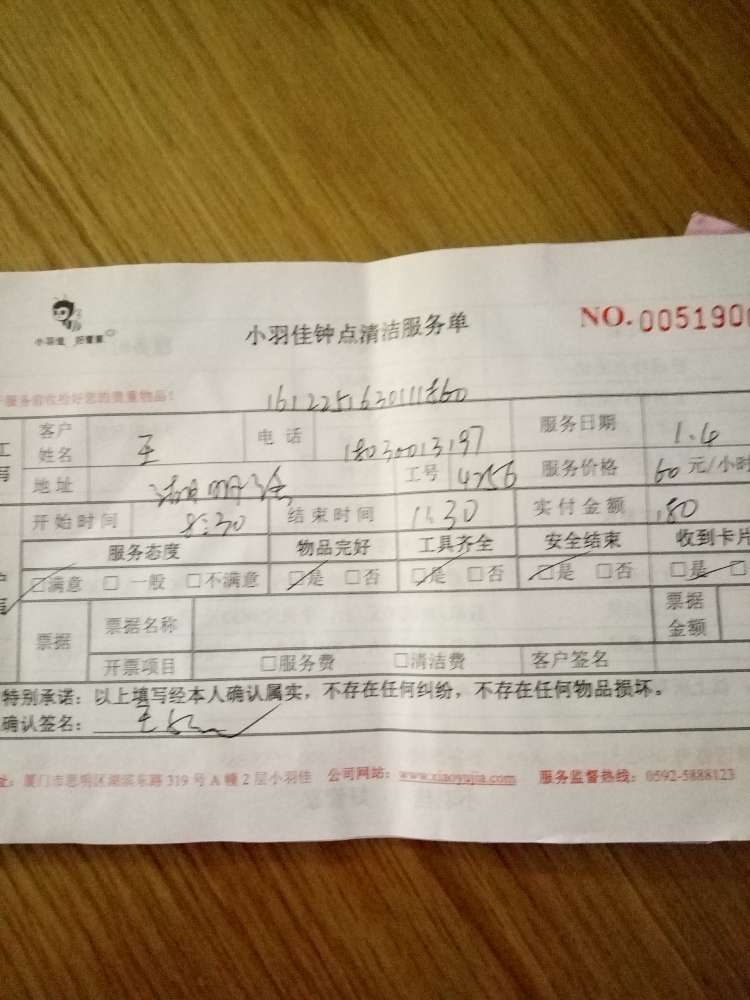 小羽佳 好管家
小羽佳钟点清洁服务单
NO. 005190
服务前收检好您的贵重物品!
1612251630111860
客户姓名 王 电话 18030013197 服务日期 1.4
地址 工号 4256 服务价格 60 元/小时
开始时间 8:30 结束时间 11:30 实付金额 180
服务态度 物品完好 工具齐全 安全结束 收到卡片
□满意 □ 一般 □不满意 □是 □否 □是 □否 □是 □否 □是 □
票据 票据名称 票据金额
开票项目 □服务费 □清洁费 客户签名
特别承诺：以上填写经本人确认属实，不存在任何纠纷，不存在任何物品损坏。
确认签名：
址：厦门市思明区湖滨东路 319 号 A 幢 2 层小羽佳 公司网站：www.xiaoyujia.com 服务监督热线：0592-5888123